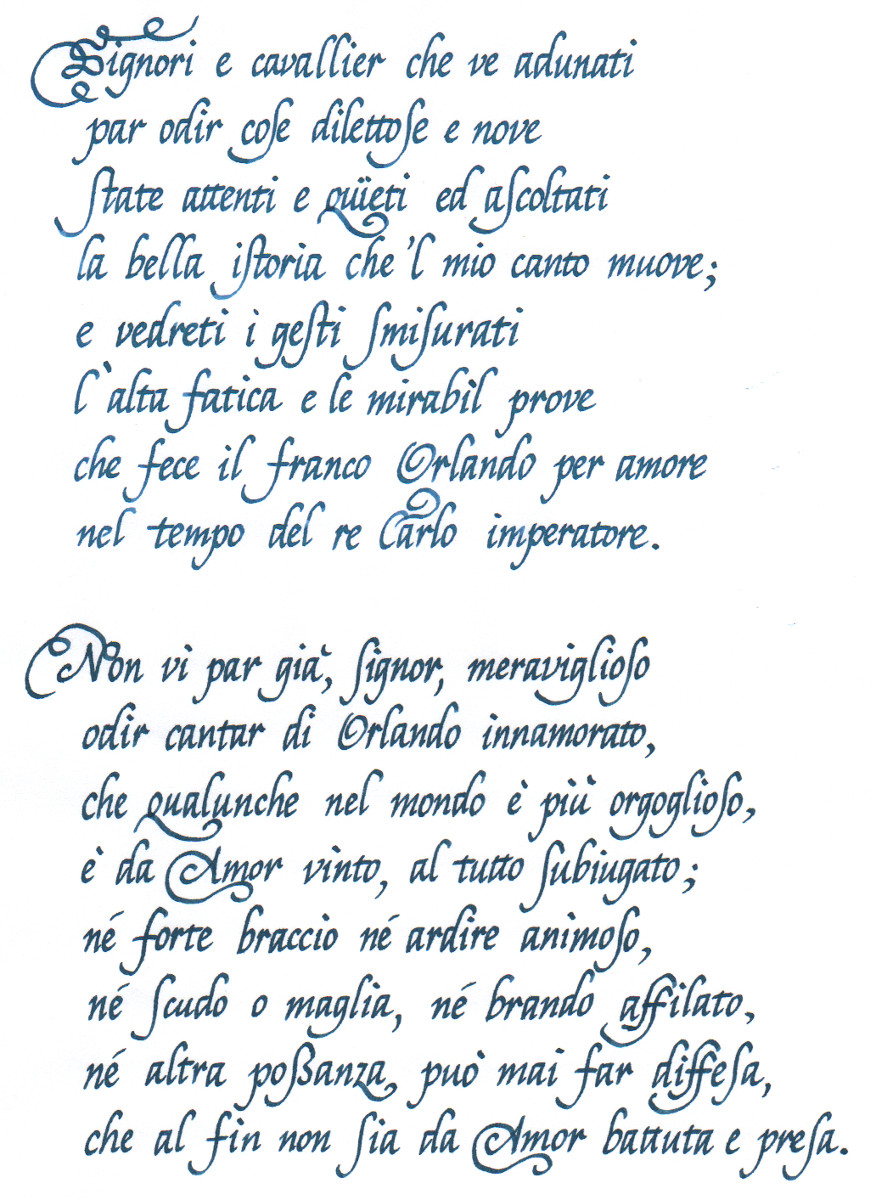 Signori e cavallier che ve adunati
par odir cose dilettose e nove
state attenti e quïeti ed ascoltati
la bella istoria che 'l mio canto muove;
e vedreti i gesti smisurati
l'alta fatica e le mirabil prove
che fece il franco Orlando per amore
nel tempo del re Carlo imperatore.
Non vi par già, signor, meraviglioso
odir cantar di Orlando innamorato,
che qualunche nel mondo è più orgoglioso,
è da Amor vinto, al tutto subiugato;
né forte braccio né ardire animoso,
né scudo o maglia, né brando affilato,
né altra poßanza, può mai far diffesa,
che al fin non sia da Amor battuta e presa.